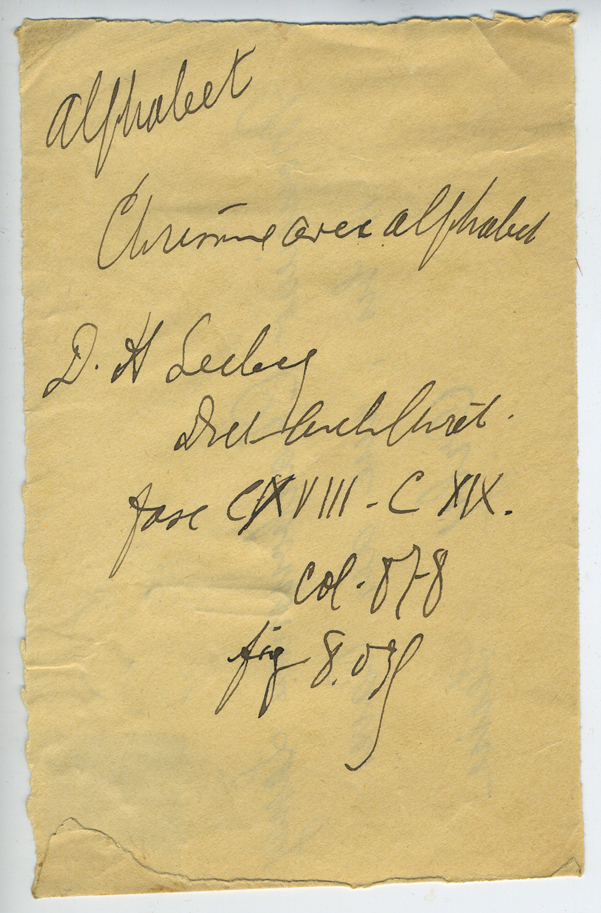 alphabet
Chrisme avec alphabet
D. H Leclercq
Dict Arch Chrét.
fasc CXVIII - C XIX.
col. 878
fig 8.039